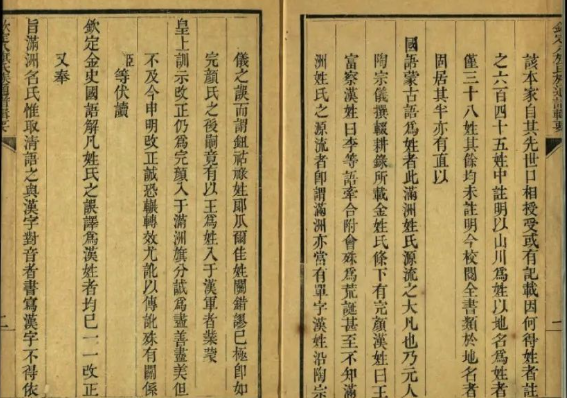 該本家自其先世口相授受或有記載因何得姓者註
之六百四十五姓中註明以山川爲姓以地名爲姓者
僅三十八姓其餘均未註明今校閱全書類於地名者
固居其半亦有直以
國語蒙古語爲姓者此滿洲姓氏源流之大凡也乃元人
陶宗儀撰輟耕錄所載金姓氏條下有完顏漢姓曰王
富察漢姓曰李等語牽合附會殊爲荒誕甚至不知滿
洲姓氏之源流者卽謂滿洲亦當有單字漢姓沿陶宗
儀之誤而謂鈕祜祿姓郎瓜爾佳姓關錯謬已極卽如
完顏氏之後嗣竟有以王爲姓入于漢軍者業蒙
皇上訓示改正仍爲完顏入于滿洲旗分誠爲盡善盡美但
不及今申明改正誠恐輾轉效尤訛以傳訛殊有關係
臣等伏讀
欽定金史國語解凡姓氏之誤譯爲漢姓者均已一一改正
又奉
旨滿洲名氏惟取清語之與漢字對音者書寫漢字不得依
二